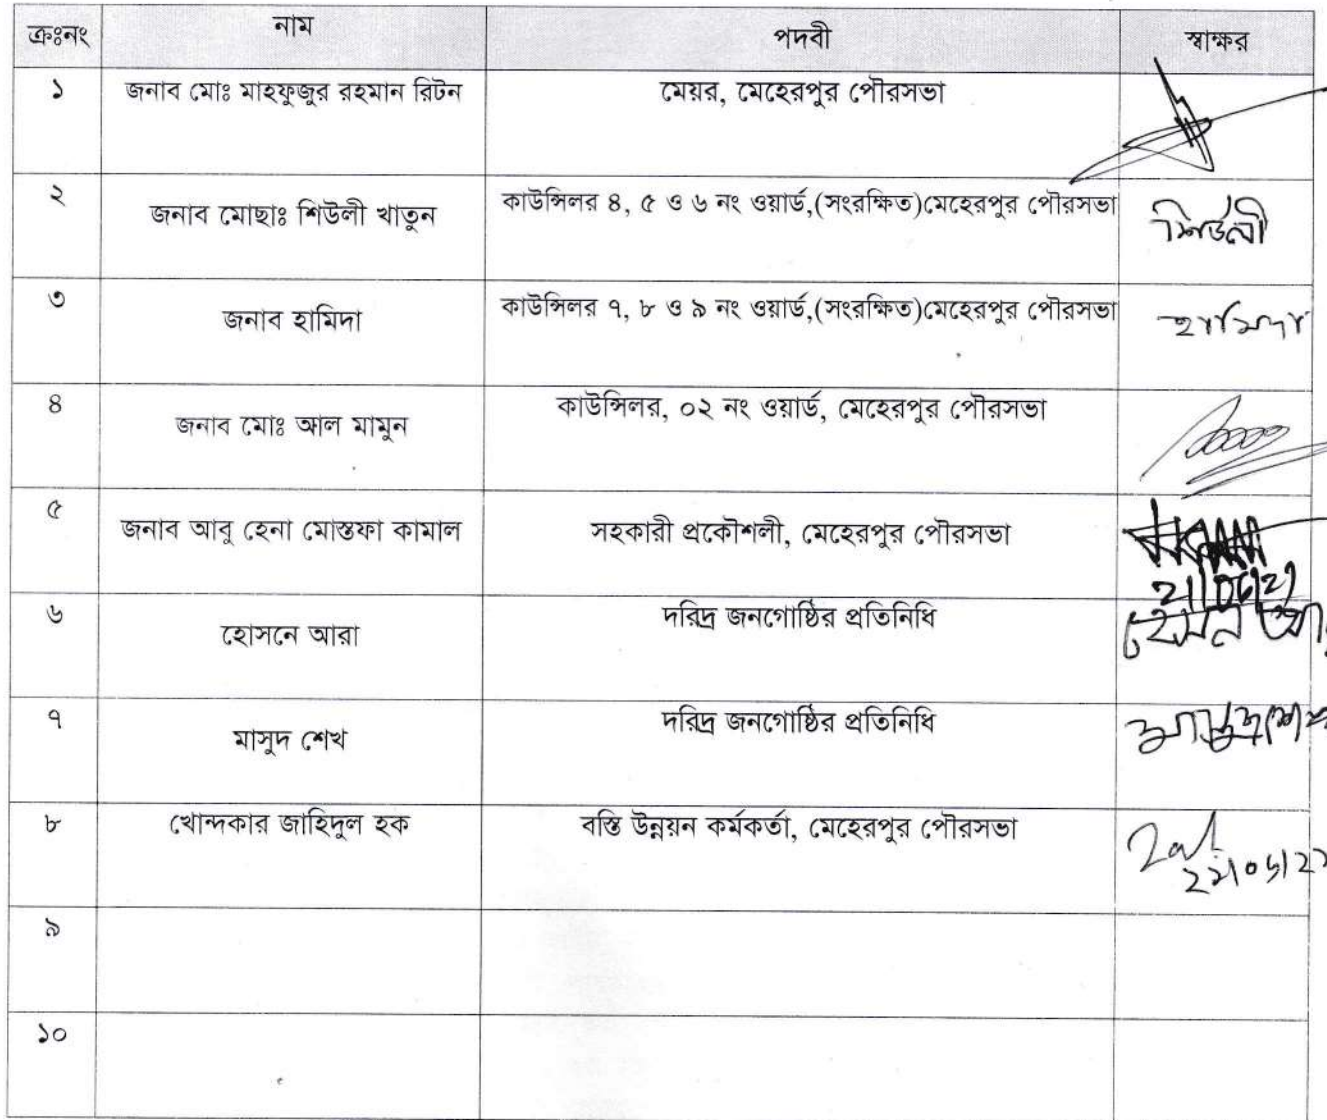 ক্রঃনং নাম পদবী স্বাক্ষর
১ জনাব মোঃ মাহফুজুর রহমান রিটন মেয়র, মেহেরপুর পৌরসভা
২ জনাব মোছাঃ শিউলী খাতুন কাউন্সিলর ৪, ৫ ও ৬ নং ওয়ার্ড,(সংরক্ষিত)মেহেরপুর পৌরসভা শিউলী
৩ জনাব হামিদা কাউন্সিলর ৭, ৮ ও ৯ নং ওয়ার্ড,(সংরক্ষিত)মেহেরপুর পৌরসভা হামিদা
৪ জনাব মোঃ আল মামুন কাউন্সিলর, ০২ নং ওয়ার্ড, মেহেরপুর পৌরসভা
৫ জনাব আবু হেনা মোস্তফা কামাল সহকারী প্রকৌশলী, মেহেরপুর পৌরসভা
৬ হোসনে আরা দরিদ্র জনগোষ্ঠির প্রতিনিধি
৭ মাসুদ শেখ দরিদ্র জনগোষ্ঠির প্রতিনিধি
৮ খোন্দকার জাহিদুল হক বস্তি উন্নয়ন কর্মকর্তা, মেহেরপুর পৌরসভা
৯
১০